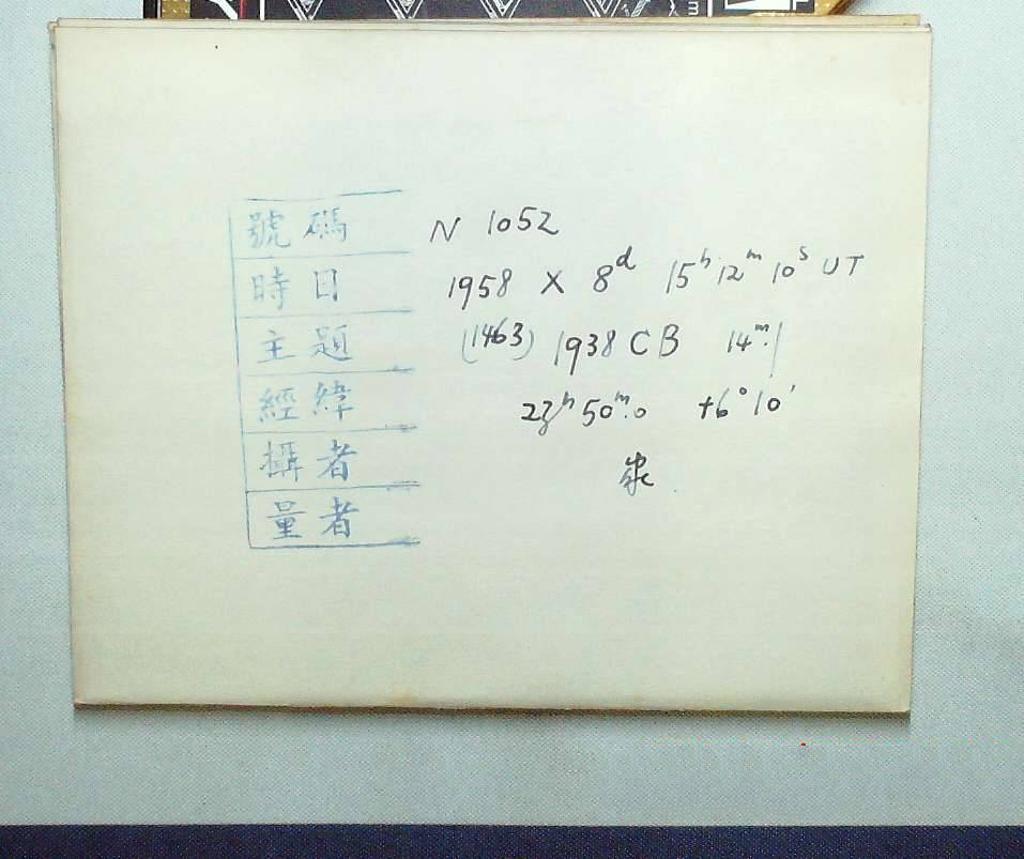 號碼 N 1052
時日 1958 X 8ᵈ 15ʰ 12ᵐ 10ˢ UT
主題 (1463) 1938 CB 14ᵐ.1
經緯 23ʰ 50ᵐ.0 +6°10'
攝者
量者